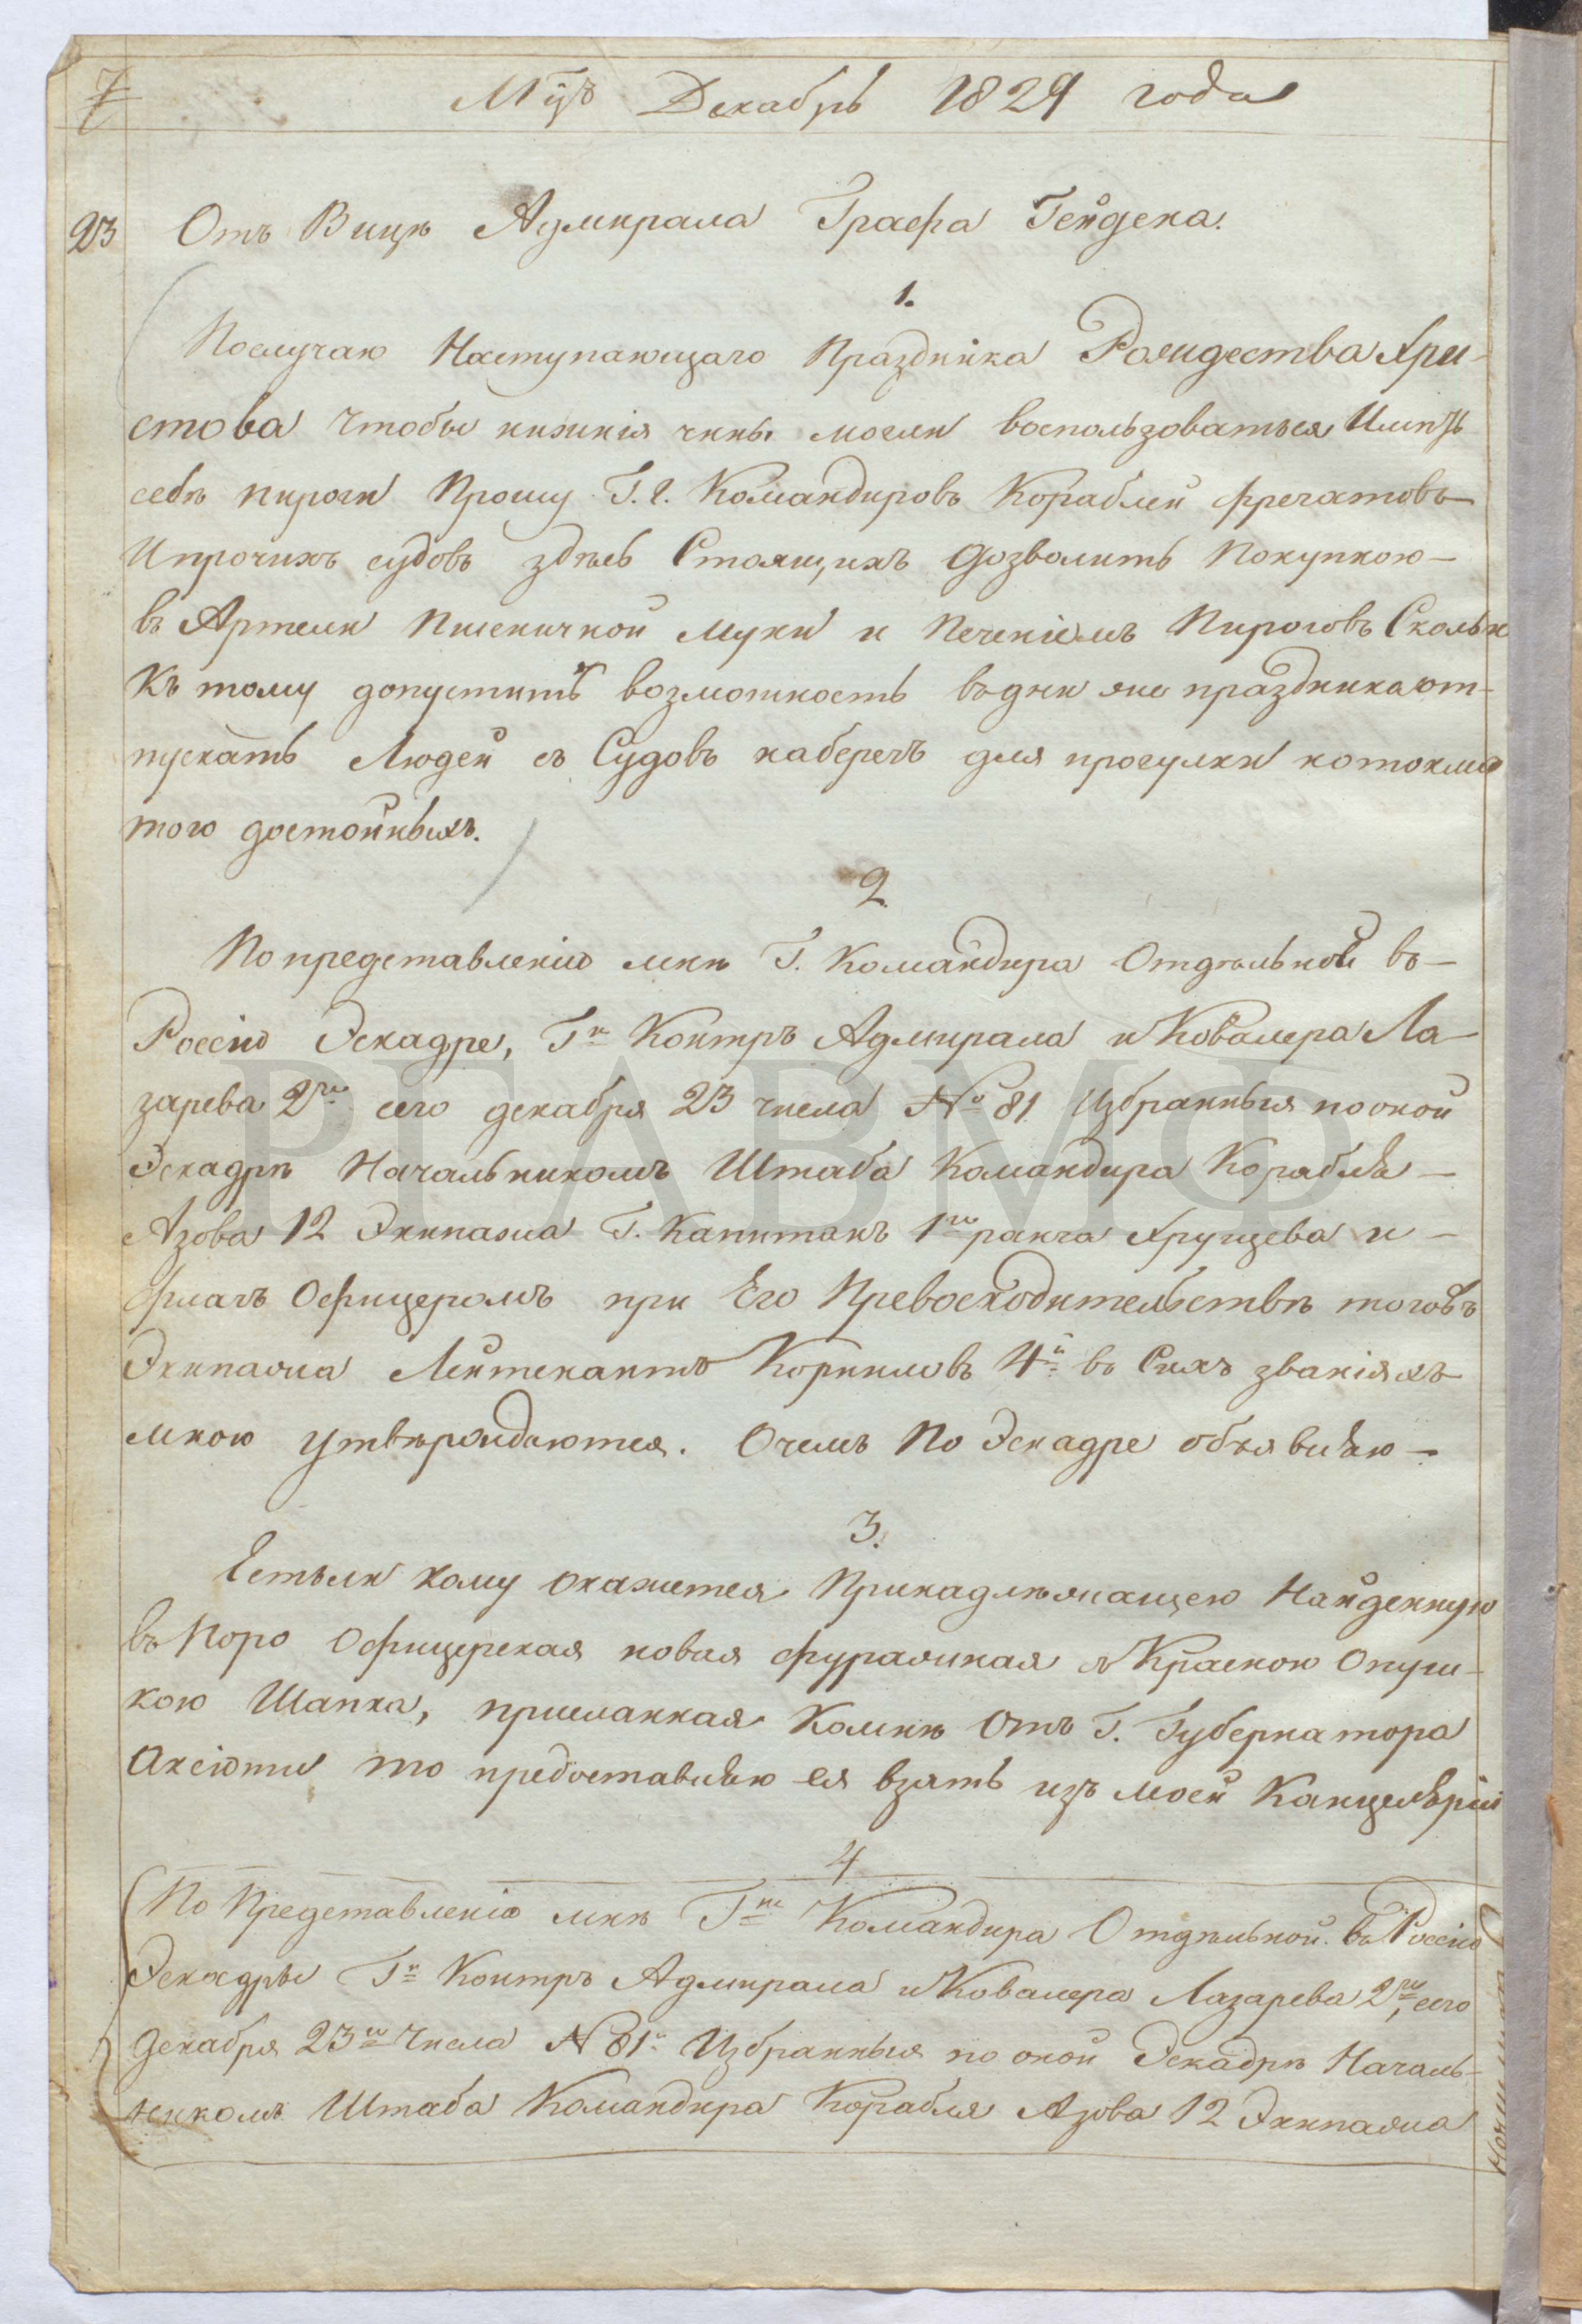 7
М-цъ Декабрь 1829 года
23
Отъ Вице Адмирала Графа Гейдена.
1.
Послучаю Наступающаго Праздника Рождества Хри-
стова чтобы нижнія чины могли воспользоваться Иметь
себѣ пироги Прошу Г.г. Командировъ Кораблей фрегатовъ
Ипрочихъ судовъ здѣсь Стоящихъ дозволить Покупкою
въ Артели Пшеничной Муки и Печеніемъ Пироговъ Скольк
Къ тому допуститъ возможность въдни же праздника от-
пускать Людей съ Судовъ наберегъ для прогулки
того достойныхъ.
2
Попредставленію мнѣ Г. Командира Отдѣльной въ
Россію Эскадре, Гн Контръ Адмирала и Ковалера Ла
зарева 2го сего декабря 23 числа № 81 Избранныя по оной
Эскадрѣ Начальникомъ Штаба Командира Корабля
Азова 12 Экипажа Г. Капитанъ 1го ранга Хрущева и
флагъ Офицеромъ при Его Превосходительствѣ тогожъ
Экипажа Лейтенантъ Корниловъ 4й въ Сихъ званіяхъ
мною утвѣрждаются. Очемъ По Эскадре объявляю
3.
Естьли кому окажется Принадлѣжащею Найденную
въ Поро Офицерская новая фуражная съ Красною Опуш-
кою Шапка, присланная Комнѣ Отъ Г. Губернатора
Аксіоти то предоставляю ея взять изъ моей Канцелярій
4
По Представленію мнѣ Гна Командира Отдѣльной въ Россію
Эскадры Гн Контръ Адмирала и Ковалера Лазарева 2го, сего
Декабря 23го Числа № 81й Избранныя по оной Эскадрѣ Началь-
никомъ Штаба Командира Корабля Азова 12 Экипажа
РГАВМФ